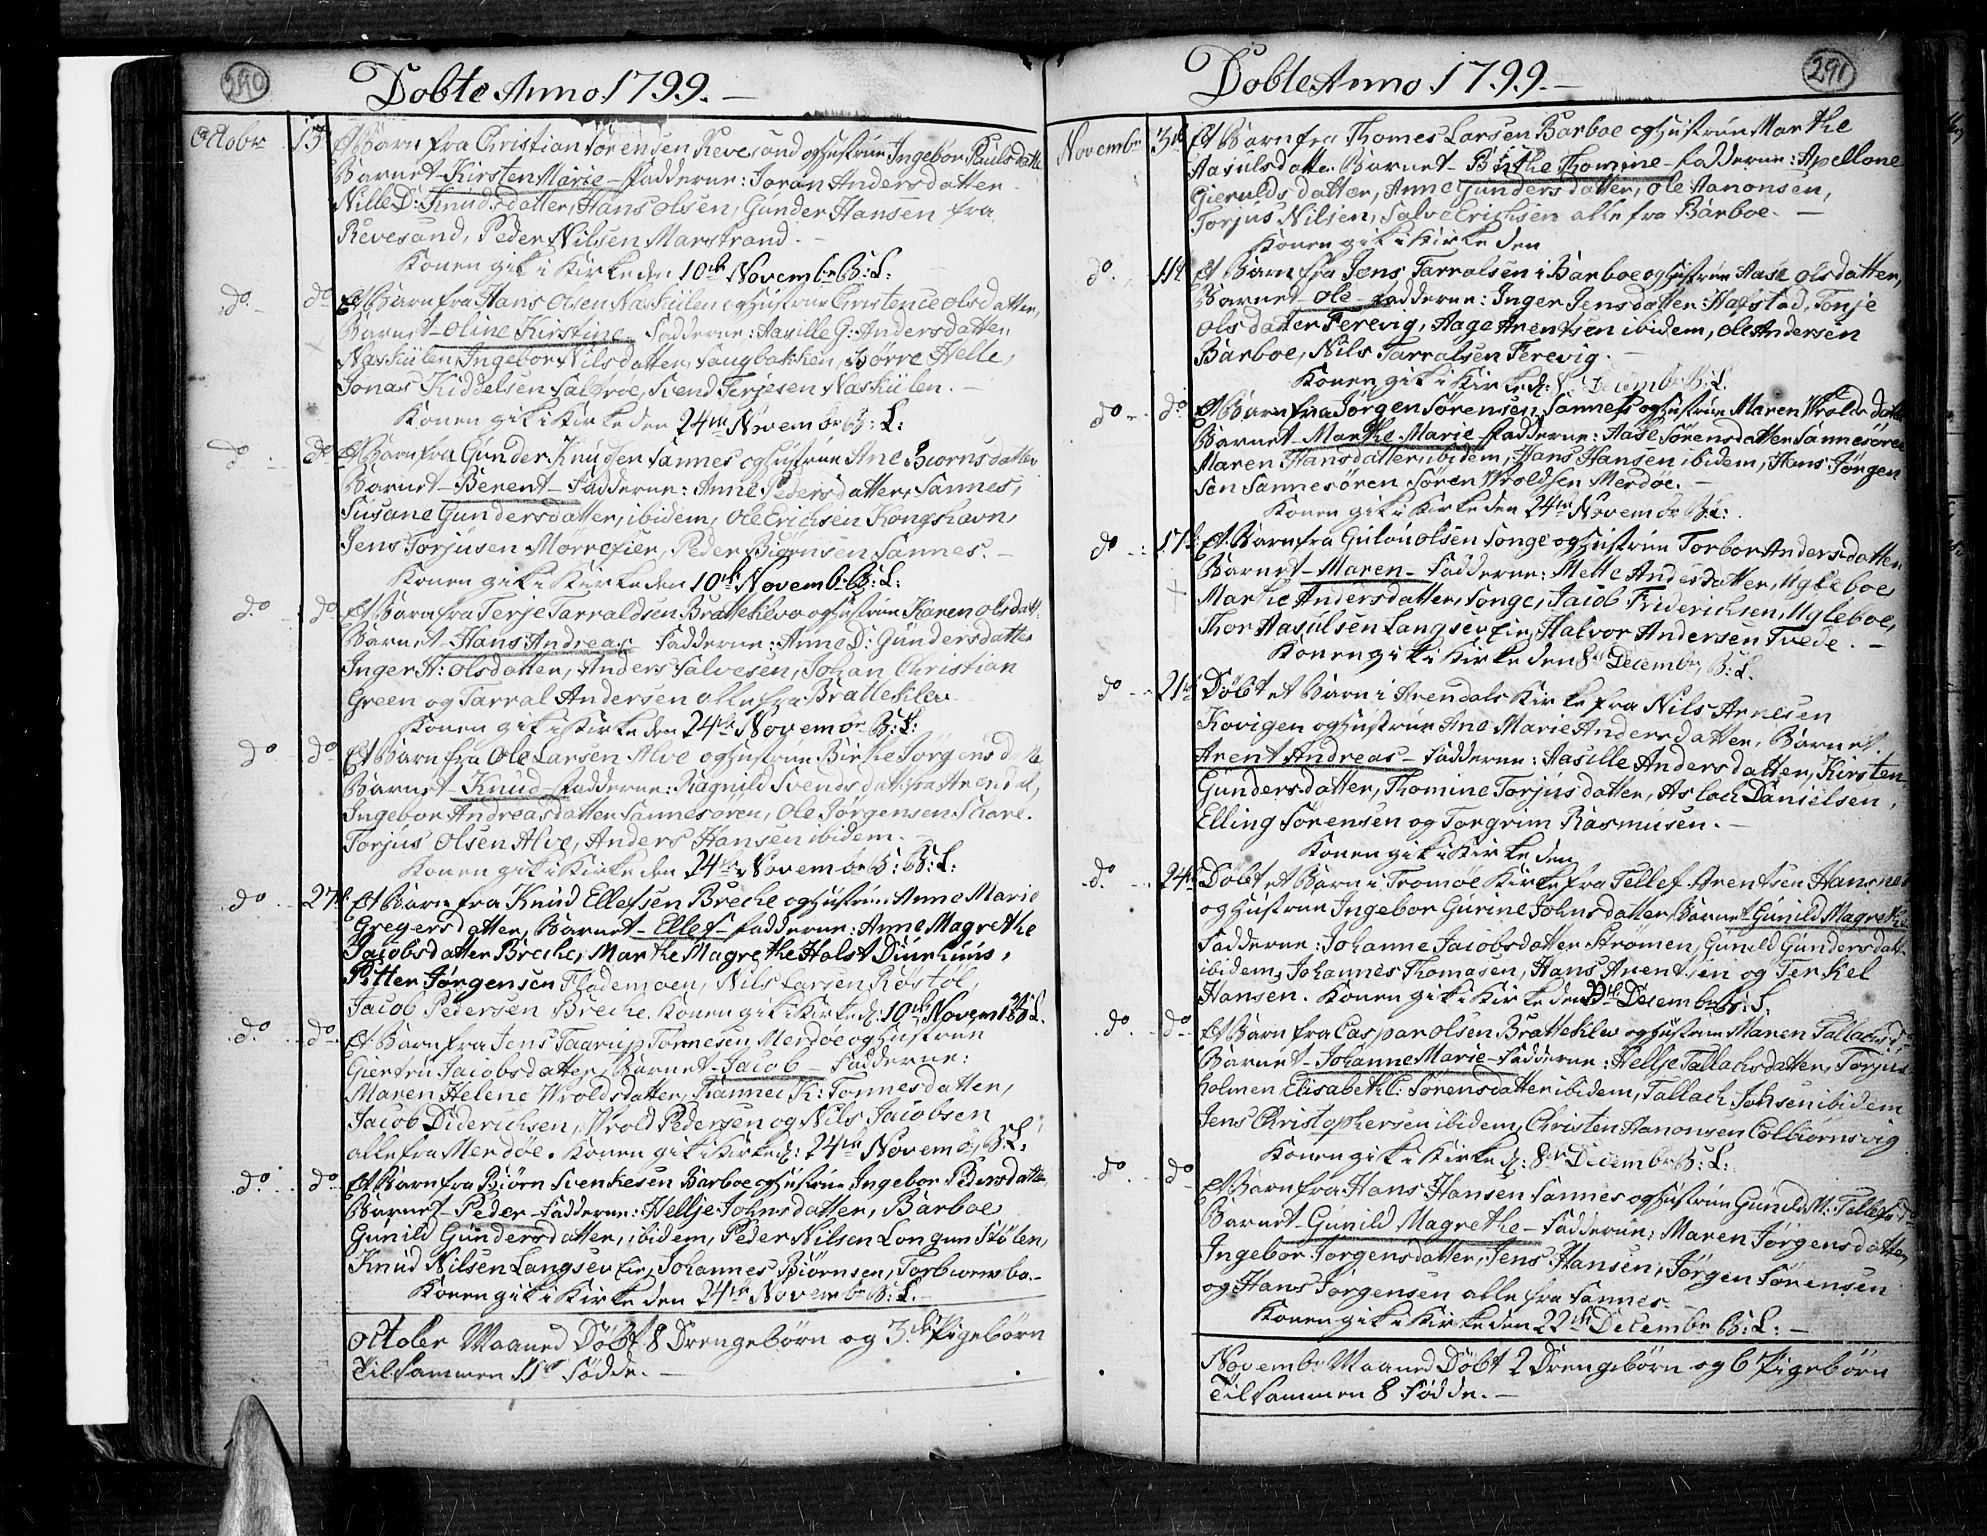 290
Dobte Anno 1799.
Octobr 13 Et Barn fra Christian Sörensen Revesand og Hustrue Ingebor Paulsdatte
Barnet Kirsten Marie Fadderne: Joran Andersdatter
Nille D: Knudsdatter, Hans Olsen, Gunder Hansen fra
Revesand, Peder Nilsen Marstrand.
Konen gik i Kirke den 10de Novembr B: L:
do do Et Barn fra Hans Olsen Naskiilen og Hustrue Christence Olsdatter,
Barnet Oline Kirstine Fadderne: Aasille G: Andersdatter
Naskiilen, Ingebor Nilsdatter, Saugbakken, Helle,
Jonas Kiddelsen Saltroe, Svend Terjesen Naskiilen.
Konen gik i Kirke den 24de Novembr B: L:
do do Et Barn fra Gunder Knudsen Sannes og Hustrue Ane Biornsdatter
Barnet Berent Fadderne: Anne Pedersdatter, Sannes,
Susane Gundersdatter, ibidem, Ole Erichsen Kongshavn,
Jens Torjusen Mørrefier, Peder Biörnsen Sannes.
Konen gik i Kirke den 10de Novembr B: L:
do do Et Barn fra Terje Tarraldsen Bratteklev og Hustrue Karen Olsdatt.
Barnet Hans Andreas Fadderne: Anne D: Gundersdatter
Inger H: Olsdatter, Anders Salvesen, Johan Christian
Green og Tarral Andersen alle fra Bratteklev
Konen gik i Kirke den 24de Novembr B: L:
do do Et Barn fra Ole Larsen Alve og Hustrue Birthe Jörgensd
Barnet Knud Fadderne: Ragnild Svendsdatt: fra Arendal,
Ingebor Andreasdatter Sannesören, Ole Jörgensen Skare.
Torjus Olsen Alve, Anders Hansen ibidem.
Konen gik i Kirke den 24de Novembr B: L:
do 27de Et Barn fra Knud Ellefsen Breche og Hustrue Anne Marie
Gregersdatter, Barnet Ellef Fadderne: Anne Magrethe
Jacobsdatter Breche, Marthe Magrethe Holst Diurhuus,
Pitter Jörgensen Flademoen, Nils Larsen Röstöl,
Jacob Pedersen Breche. Konen gik i Kirke d: 10de Novembr B: L.
do do Et Barn fra Jens Taarup Tønnesen Merdøe og Hustrue
Giertru Jacobsdatter, Barnet Jacob Fadderne:
Maren Helene Wroldsdatter, K: Tonnesdatter,
Jacob Diderichsen, Wrold Pedersen og Nils Jacobsen
alle fra Merdøe. Konen gik i Kirke d: 24de Novembr B: L:
do do Et Barn fra Biörn Svenkesen Barboe og Hustrue Ingebor Pedersdatte
Barnet Peder Fadderne: Hellje Johnsdatter, Barboe
Gunild Gundersdatter, ibidem, Peder Nilsen Longum Stølen,
Knud Nilsen Langsev Eie, Johannes Biörnsen, Torbiornsbo.
Konen gik i Kirke den 24de Novembr B: L.
October Maaned Döbt 8 Drengebörn og 3de Pigebörn
Tilsammen 11 Födde.
291
Dobte Anno 1799.
Novembr 3de Et Barn fra Thomes Larsen Barboe og Hustrue Marthe
Aasulsdatte. Barnet Birthe Thomine Fadderne: Apellone
Gieruldsdatter, Anne Gundersdatter, Ole Aanonsen,
Torjus Nilsen, Salve Erichsen alle fra Barboe.
Konen gik i Kirke den
do 11te Et Barn fra Jens Tarralsen i Barboe og Hustrue Aase Olsdatter,
Barnet Ole Fadderne: Inger Jensdatter Hafstad, Tonje
Olsdatter Ferevig, Aage Arentsen ibidem, Ole Andersen
Barboe, Nils Tarralsen Ferevig.
Konen gik i Kirke d: Decembr B: L.
do do Et Barn fra Jörgen Sörensen Sannes og Hustrue Maren Wrolds datte
Barnet Marthe Marie Fadderne: Aase Sörensdatter Sannesören
Maren Hansdatter, ibidem, Hans Hansen ibidem, Hans Jörgen
sen Sannesören Sören Wroldsen Merdøe.
Konen gik i Kirke den 24de Novembr B: L:
do 17de Et Barn fra Gulou Olsen Songe og Hustrue Torbor Andersdatter
Barnet Maren Fadderne: Mette Andersdatter, Ugleboe
Marthe Andersdatter, Songe, Jacob Friderichsen, Ugleboe,
Thor Aasulsen Langsev Eie, Halvor Andersen Tvede.
Konen gik i Kirke den 8de Decembr B: L.
do 21de Döbt et Barn i Arendals Kirke fra Nils Arnesen
Kovigen og Hustrue Ane Marie Andersdatter. Barnet
Arent Andreas Fadderne: Aasille Andersdatter, Kirsten
Gundersdatter, Thomine Torjusdatter, Aslach Danielsen,
Elling Sörensen og Torgrim Rasmusen.
Konen gik i Kirke den
do 24de Döbt et Barn i Tromøe Kirke fra Tellef Arentsen Hansnes
og Hustrue Ingebor Gurine Johnsdatter, Barnet Gunild Magrethe
Fadderne: Johanne Jacobsdatter Strömen, Gunild Gundersdatt:
ibidem, Johannes Thomasen, Hans Arentsen og Terkel
Hansen. Konen gik i Kirke den Desembr B: L.
do do Et Barn fra Caspar Olsen Bratteklev og Hustrue Maren Tallachsd
Barnet Johanne Marie Fadderne: Hellje Tallachsdatter, Torjus
holmen Elisabeth C: Sörensdatter ibidem, Tallach Johsen ibidem
Jens Christophersen ibidem, Christen Aanonsen Colbiörnsvig
Konen gik i Kirke d: 8de Decembr B: L:
do do Et Barn fra Hans Hansen Sannes og Hustrue Gunild M: Tellefsd
Barnet Gunild Magrethe Fadderne: Maren Jörgensdatter
Ingebor Jörgensdatter, Jens Hansen, Jörgen Sörensen
og Hans Jörgensen alle fra Sannes.
Konen gik i Kirke den 22de Decembr B: L:
Novembr Maaned Döbt 2 Drengebörn og 6 Pigebörn
Tilsammen 8 Födde.